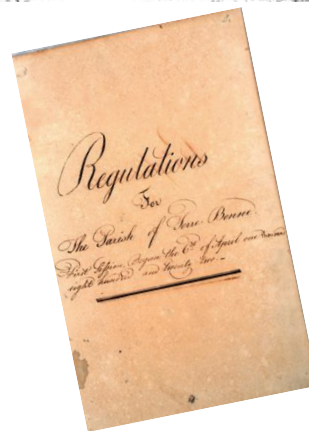 Regulations
For
The Parish of Terre Bonne
First Session Begun the 6th of April one thousand
eight hundred and twenty two.